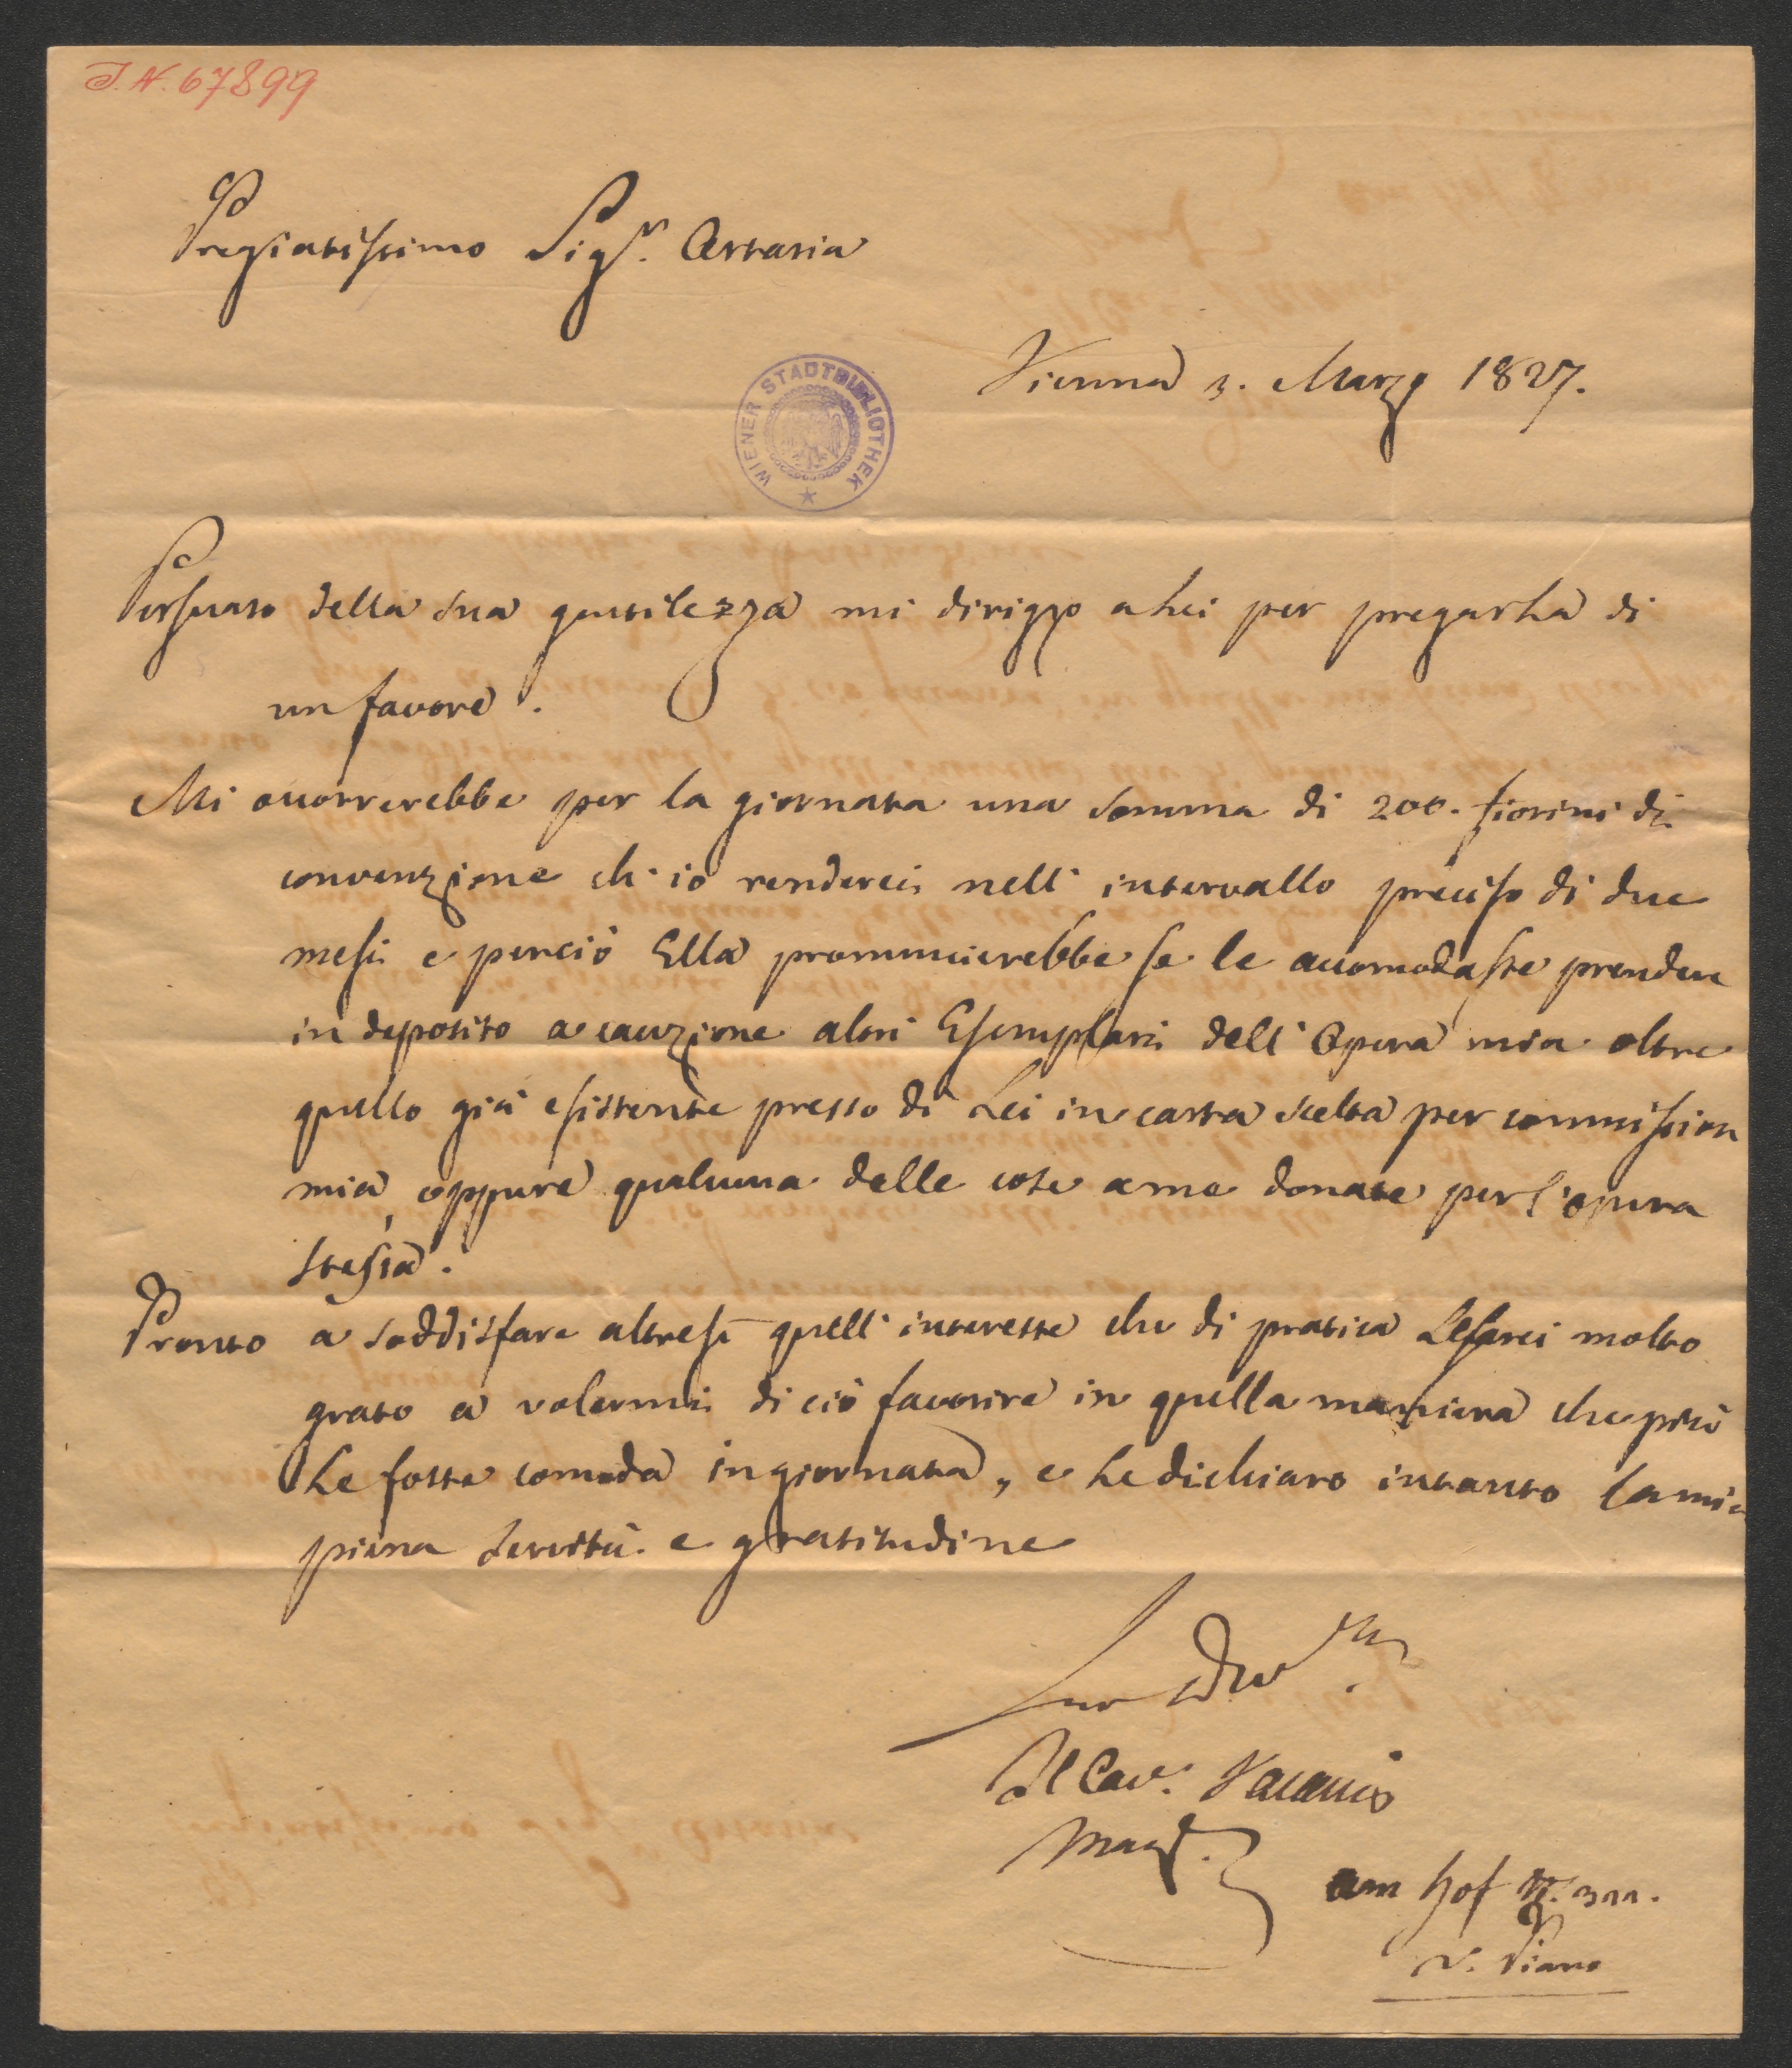 J.N. 67899
Pregiatissimo Sigr. Artaria
WIENER STADTBIBLIOTHEK
Vienna 3. Marzo 1827.
Persuaso della sua gentilezza mi diriggo a Lei per pregarLa di
un favore.
Mi occorrerebbe per la giornata una somma di 200. fiorini di
convenzione ch'io renderei nell'intervallo preciso di due
mesi e perciò Ella pronuncierebbe se le accomodasse prendere
in deposito a cauzione altri Esemplari dell'Opera mia oltre
quello già esistente presso di Lei in carta scelta per commission
mia, oppure qualcuna delle cose a me donate per l'opera
stessa.
Pronto a soddisfare altresì quell'interesse che di pratica Le sarei molto
grato a volermi di ciò favorire in quella maniera che più
Le fosse comoda in giornata, e Le dichiaro intanto la mia
piena servitù e gratitudine
Suo
Il Cav. Vacani
Magg.
am hof N. 311.
2. Piano